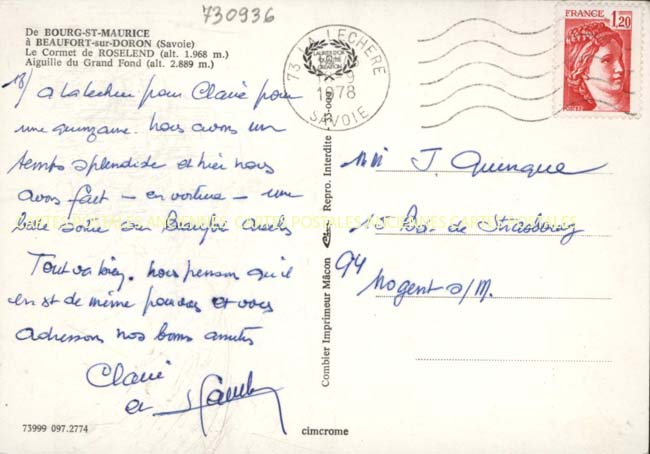 730936
De BOURG-ST-MAURICE
à BEAUFORT-sur-DORON (Savoie)
Le Cormet de ROSELEND (alt. 1.968 m.)
Aiguille du Grand Fond (alt. 2.889 m.)
73 LA LECHERE
1978
SAVOIE
FRANCE
1,20
A la Léchère pour Claire pour
une quinzaine. Nous avons un
temps splendide et hier nous
avons fait - en voiture - une
belle sortie sur Beaufort
Tout va bien. Nous pensons qu'il
en est de même pour vous et vous
adressons nos bonnes amitiés
Claire
et
J. Quinque
Bd. de Strasbourg
94
Nogent s/M.
CARTES POSTALES ANCIENNES
Combier Imprimeur Mâcon
Repro. Interdite - 73-009
73999 097.2774
cimcrome